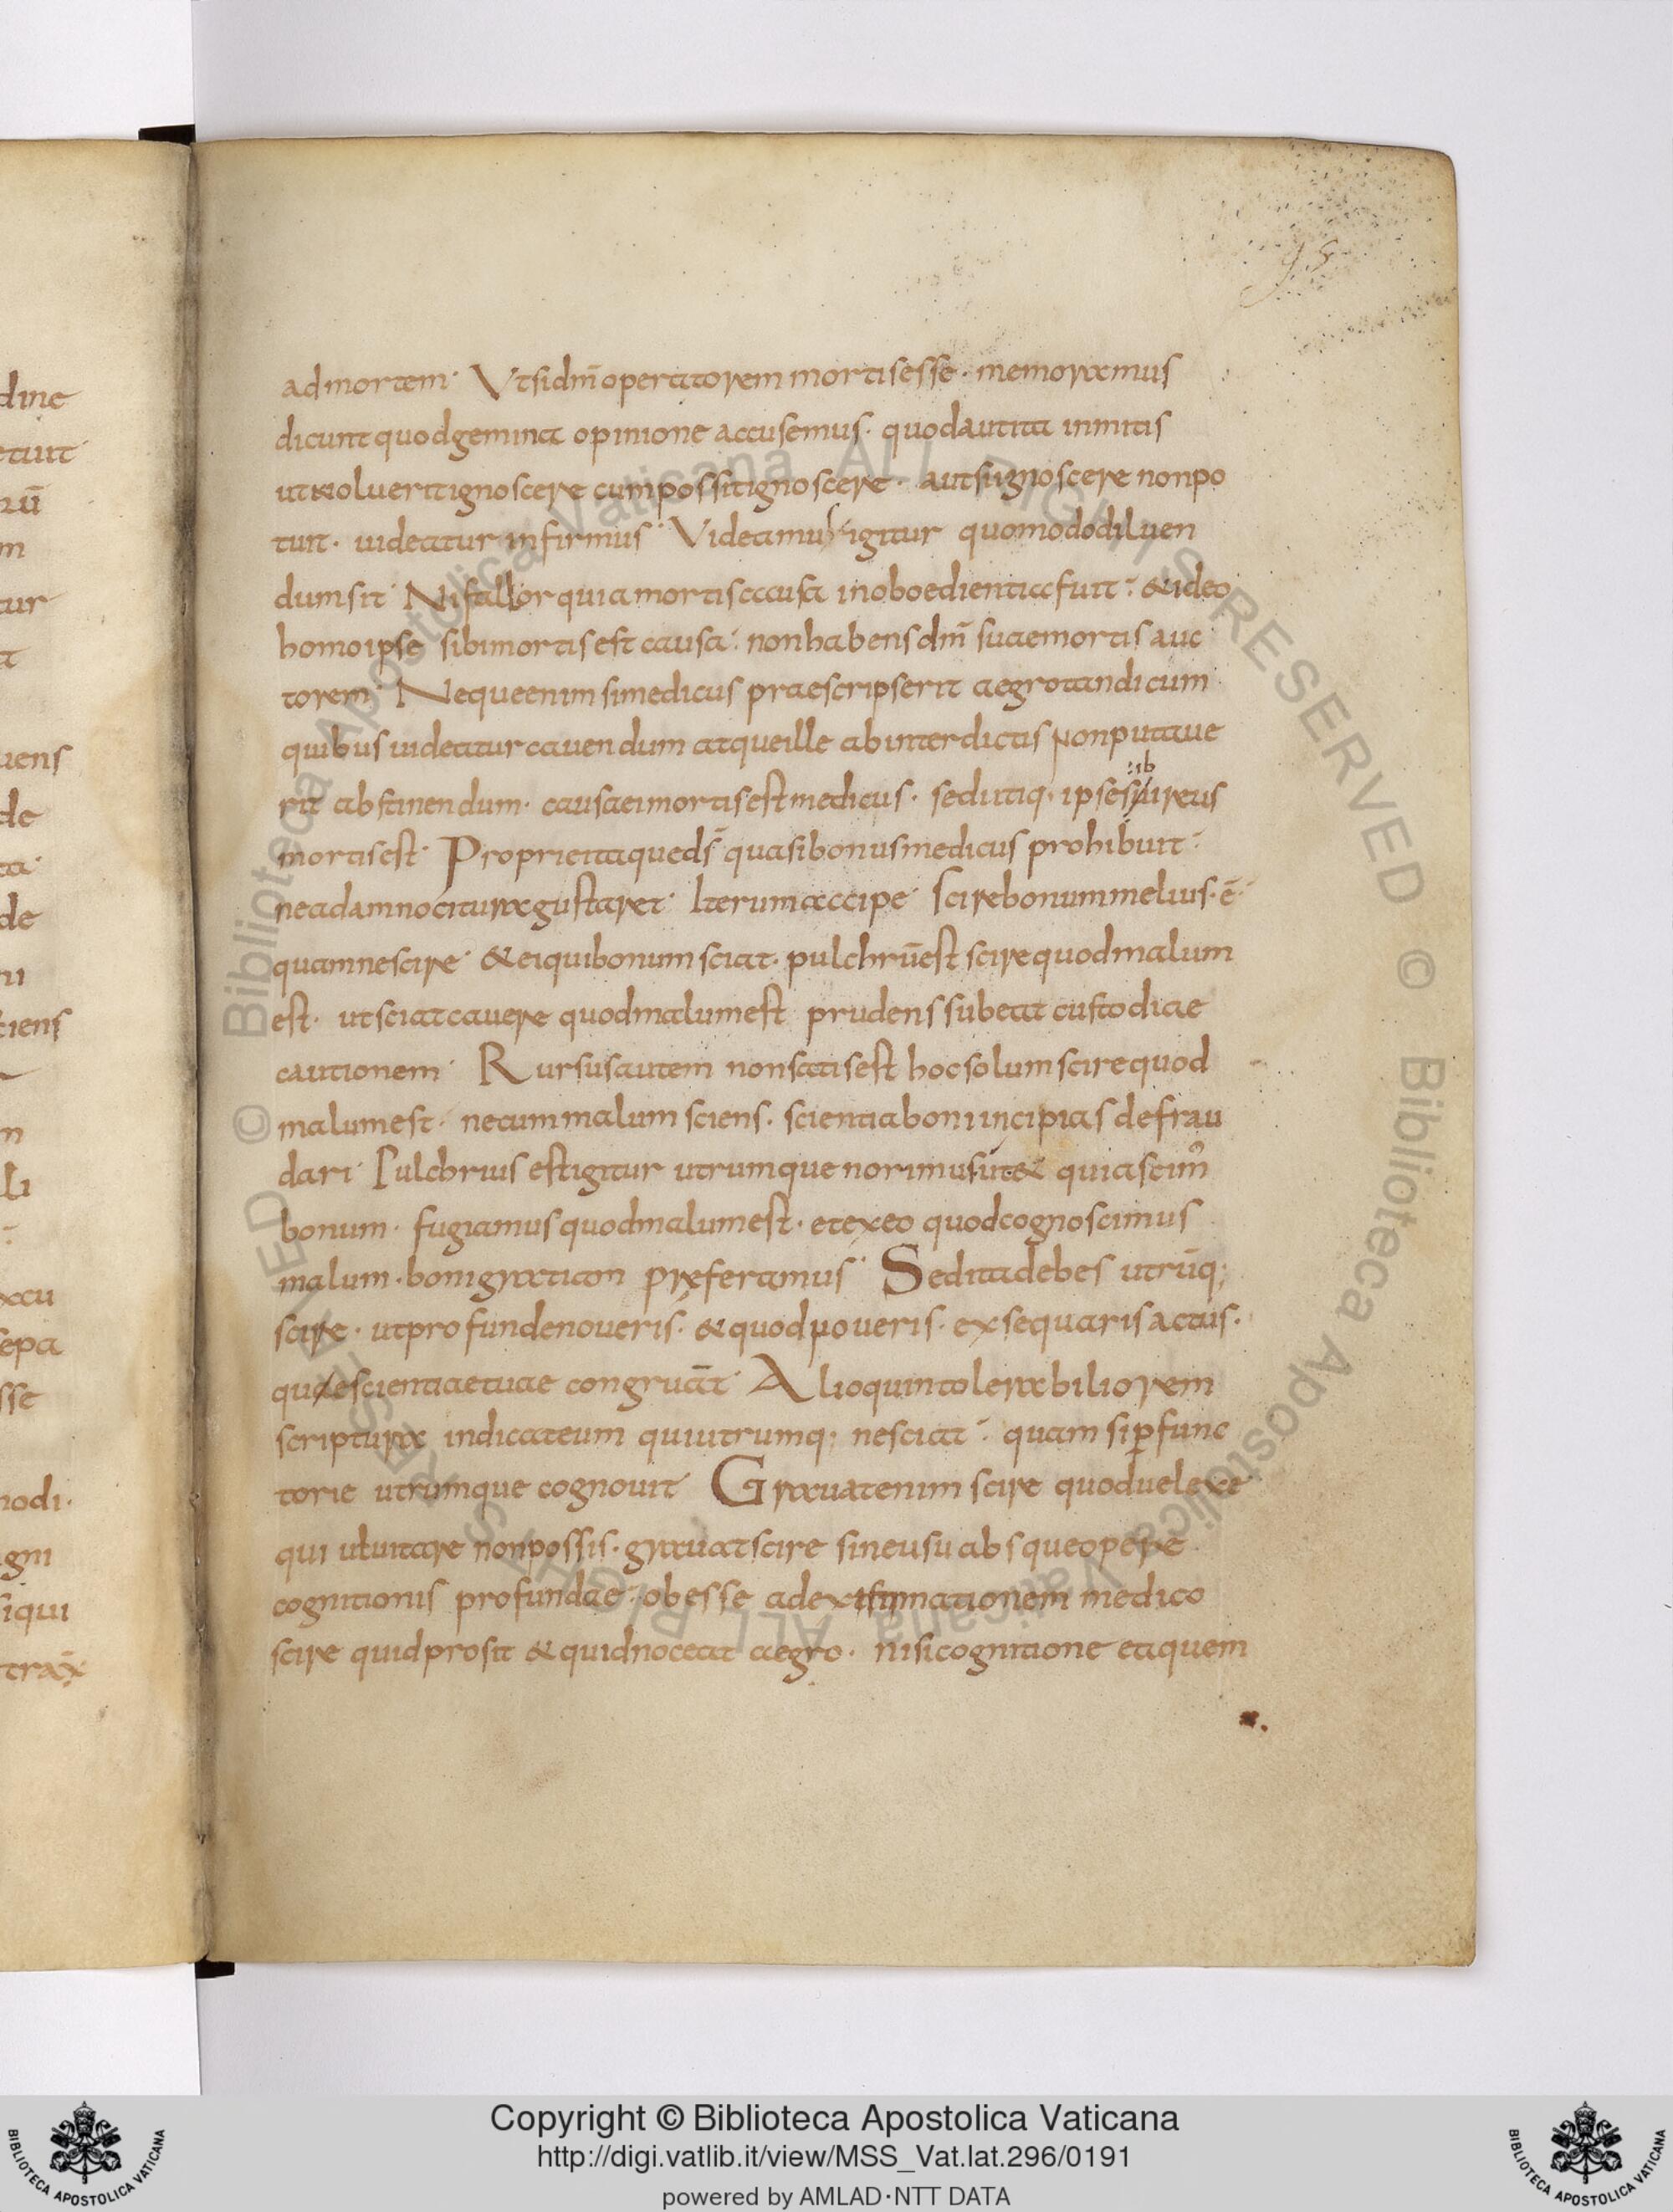 95
ad mortem· Ut si dm̄ operatorem mortis esse· memoramus
dicunt quod gemina opinione accusemus· quod aut ita inmitis
ut noluerit ignoscere cum possit ignoscere· aut si ignoscere non po
tuit· uideatur infirmus· Videamus igitur quomodo diluen
dum sit· Ni fallor quia mortis causa inoboedientia fuit· & ideo
homo ipse sibi mortis est causa· non habens dm̄ suae mortis auc
torem· Neque enim si medicus praescripserit aegrotandi cum
quibus uideatur cauendum atque ille ab interdictis non putaue
rit abstinendum· causa ei mortis est medicus· sed utiq· ipse sui reus
mortis est· Proprie itaque ds̄ quasi bonus medicus prohibuit·
ne adam nocitura gustaret· Iterum accipe· Scire bonum melius· ē·
quam nescire· & ei qui bonum sciat· pulchrū est scire quod malum
est· ut sciat cauere quod malum est prudens subeat custodiae
cautionem· Rursus autem non satis est hoc solum scire quod
malum est· ne cum malum sciens· scientia boni incipias defrau
dari· Pulchrius est igitur utrumque norimus ut & quia scim᾽
bonum· fugiamus quod malum est· et ex eo quod cognoscimus
malum· boni gratiam praeferamus· Sed ita debes utrūq;
scire· ut profunde noueris· & quod noueris· exsequaris actus·
quae scientiae tuae congruāt· Alioquin tolerabiliorem
scriptura indicat eum qui utrumq; nesciat· quam si ꝑfunc
torie utrumque cognouit· Grauat enim scire quod uel exe
qui uel uitare non possis· grauat scire sine usu absque opere
cognitionis profundae· obesse ad existimationem medico
scire quid prosit & quid noceat aegro· nisi cognitione ea quem
dine
Copyright © Biblioteca Apostolica Vaticana
http://digi.vatlib.it/view/MSS_Vat.lat.296/0191
powered by AMLAD·NTT DATA
BIBLIOTECA APOSTOLICA VATICANA
BIBLIOTECA APOSTOLICA VATICANA